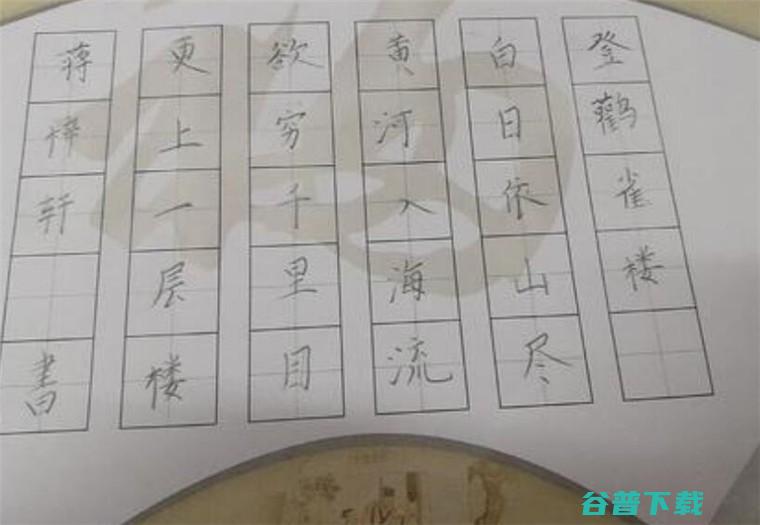 登鹳雀楼
白日依山尽
黄河入海流
欲穷千里目
更上一层楼
蒋烨轩 书
谷普下载